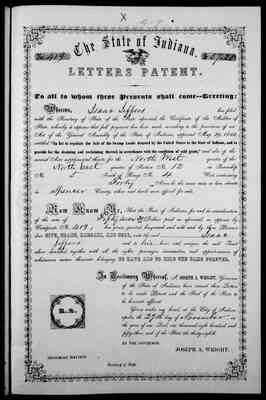 The State of Indiana.
LETTERS PATENT.
To all to whom these Presents shall come—Greeting:
Whereas, Isaac Jeffers has filed
with the Secretary of State of the State aforesaid the Certificate of the Auditor of
State, whereby it appears that full payment has been made according to the provisions of an
Act of the General Assembly of the State of Indiana, approved May 29, 1852,
entitled "An Act to regulate the Sale of the Swamp Lands donated by the United States to the State of Indiana, and to
provide for the draining and reclaiming thereof in accordance with the condition of said grant," and also of the
several Acts supplemental thereto for the North West quarter of the
North East quarter of Section No. 12 in Township
No. South of Range No. 4 West containing
Forty Acres be the same more or less, situate
in Spencer County, when said lands were offered for sale.
Now Know Ye, That the State of Indiana, for and in consideration
of the sum of Fifty Dollars paid as aforesaid, as appears by
Certificate No. 419, has given, granted, bargained and sold, and by these Presents
does GIVE, GRANT, BARGAIN, AND SELL, unto the said Isaac
Jeffers and to heirs and assigns the said Tract
above described, together with all the rights, privileges, immunities, and appurtenances of
whatsoever nature thereunto belonging TO HAVE AND TO HOLD THE SAME FOREVER.
In Testimony Whereof, I, JOSEPH A. WRIGHT, Governor
of the State of Indiana, have caused these Letters
to be made Patent and the Seal of the State to
be hereunto affixed.
Given under my hand, at the City of Indianapolis,
upon the 27th day of November in
the year of our Lord, one thousand eight hundred and fifty
and of the State the thirty-eighth.
BY THE GOVERNOR:
JOSEPH A. WRIGHT.
Secretary of State.